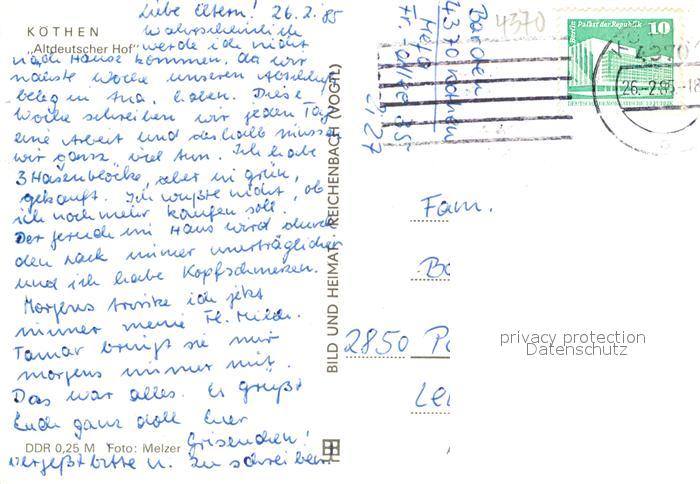 KÖTHEN
„Altdeutscher Hof“
Liebe Eltern! 26.2.85
Wahrscheinlich
werde ich nicht
nach Hause kommen, da wir
nächste Woche unseren Abschluß
beleg in haben. Diese
Woche schreiben wir jeden Tag
eine Arbeit und deshalb müssen
wir ganz viel tun. Ich habe
3 Hasenblöcke, aber in grün,
gekauft. Ich wußte nicht, ob
ich noch mehr kaufen soll.
Der im Haus wird durch
den Lack immer unerträglicher
und ich habe Kopfschmerzen.
Morgens trinke ich jetzt
immer meine Fl. Milch.
Tamar bringt sie mir
morgens immer mit.
Das war alles. Es grüßt
Euch ganz doll Euer
DDR 0,25 M Foto: Melzer
vergeßt bitte n. zu schreiben!
BILD UND HEIMAT · REICHENBACH (VOGTL)
4370 Köthen
4370
Palast der Republik
10
DEUTSCHE DEMOKRATISCHE REPUBLIK
4370
26.-2.85-18
Fam.
2850 P
privacy protection
Datenschutz